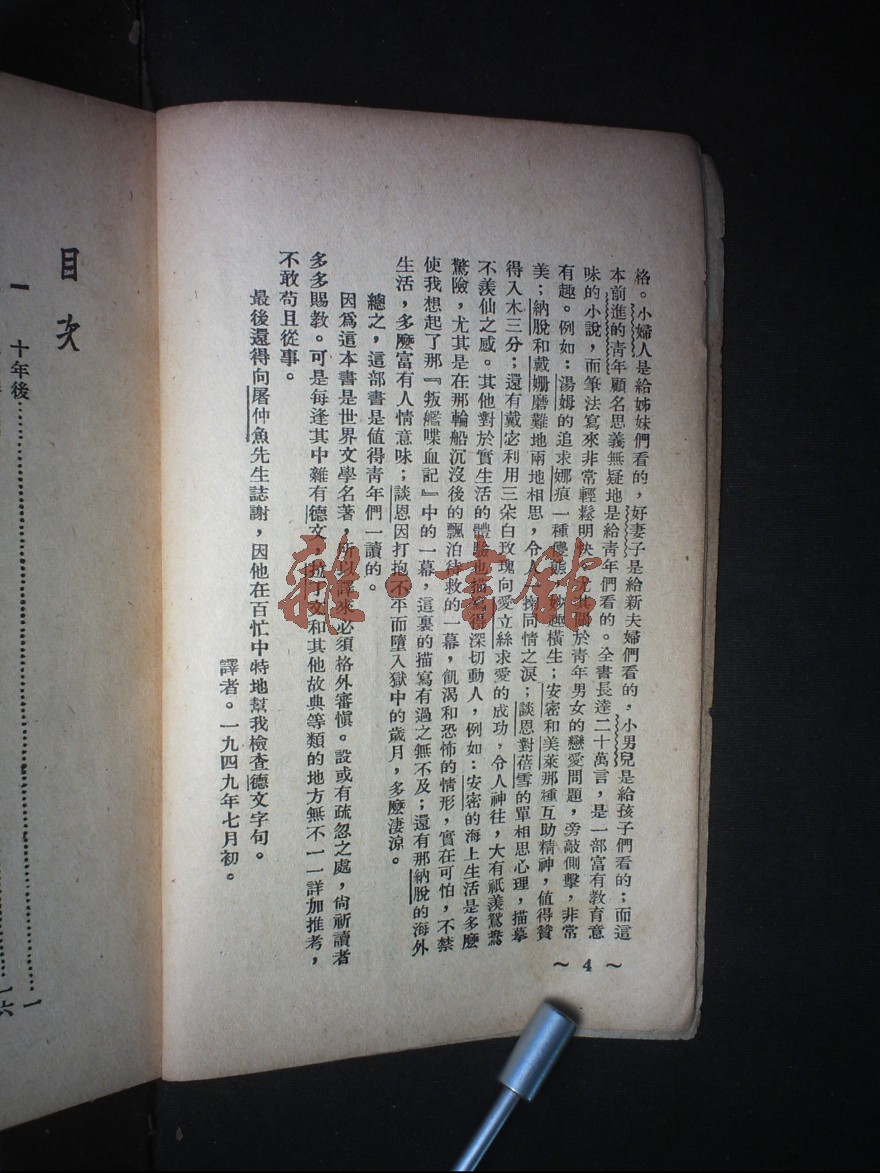 格。小婦人是給姊妹們看的，好妻子是給新夫婦們看的，小男兒是給孩子們看的；而這
本前進的靑年顧名思義無疑地是給靑年們看的。全書長達二十萬言，是一部富有敎育意
味的小說，而筆法寫來非常輕鬆明快。尤其關於靑年男女的戀愛問題，旁敲側擊，非常
有趣。例如：湯姆的追求娜痕一種優態，妙趣橫生；安密和美萊那種互助精神，値得贊
美；納脫和戴姍磨難地兩地相思，令人揮同情之淚；談恩對蓓雪的單相思心理，描摹
得入木三分；還有戴宓利用三朵白玫瑰向愛立絲求愛的成功，令人神往，大有祇羨鴛鴦
不羨仙之感。其他對於實生活的體驗也描寫得深切動人，例如：安密的海上生活是多麽
驚險，尤其是在那輪船沉沒後的飄泊待救的一幕，飢渴和恐怖的情形，實在可怕，不禁
使我想起了那『叛艦喋血記』中的一幕，這裏的描寫有過之無不及；還有那納脫的海外
生活，多麽富有人情意味；談恩因打抱不平而墮入獄中的歲月，多麽淒涼。
總之，這部書是値得靑年們一讀的。
因爲這本書是世界文學名著，所以譯來必須格外審愼。設或有疏忽之處，尙祈讀者
多多賜敎。可是每逢其中雜有德文，拉丁文和其他故典等類的地方無不一一詳加推考，
不敢苟且從事。
最後還得向屠仲魚先生誌謝，因他在百忙中特地幫我檢查德文字句。
譯者。一九四九年七月初。
～4～
目次
一 十年後……一
一六
雜·書館